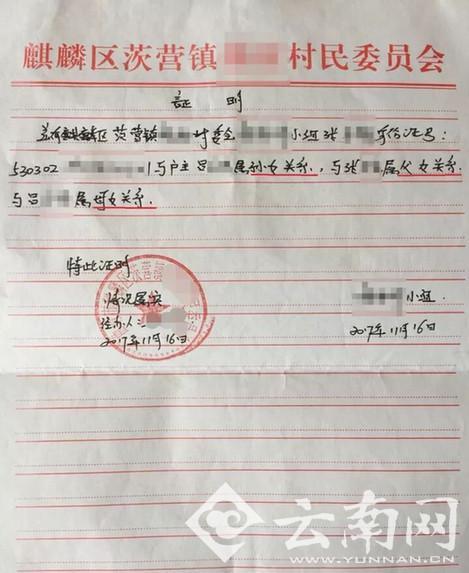 麒麟区茨营镇 村民委员会
证 明
兹有麒麟区茨营镇 村委会 小组张 身份证号:
530302 1与户主吕 属孙女关系,与张 属父女关系
与吕 属母女关系.
特此证明
情况属实
经办人:
2017年11月16日
小组
2017年11月16日
云南网
WWW.YUNNAN.CN